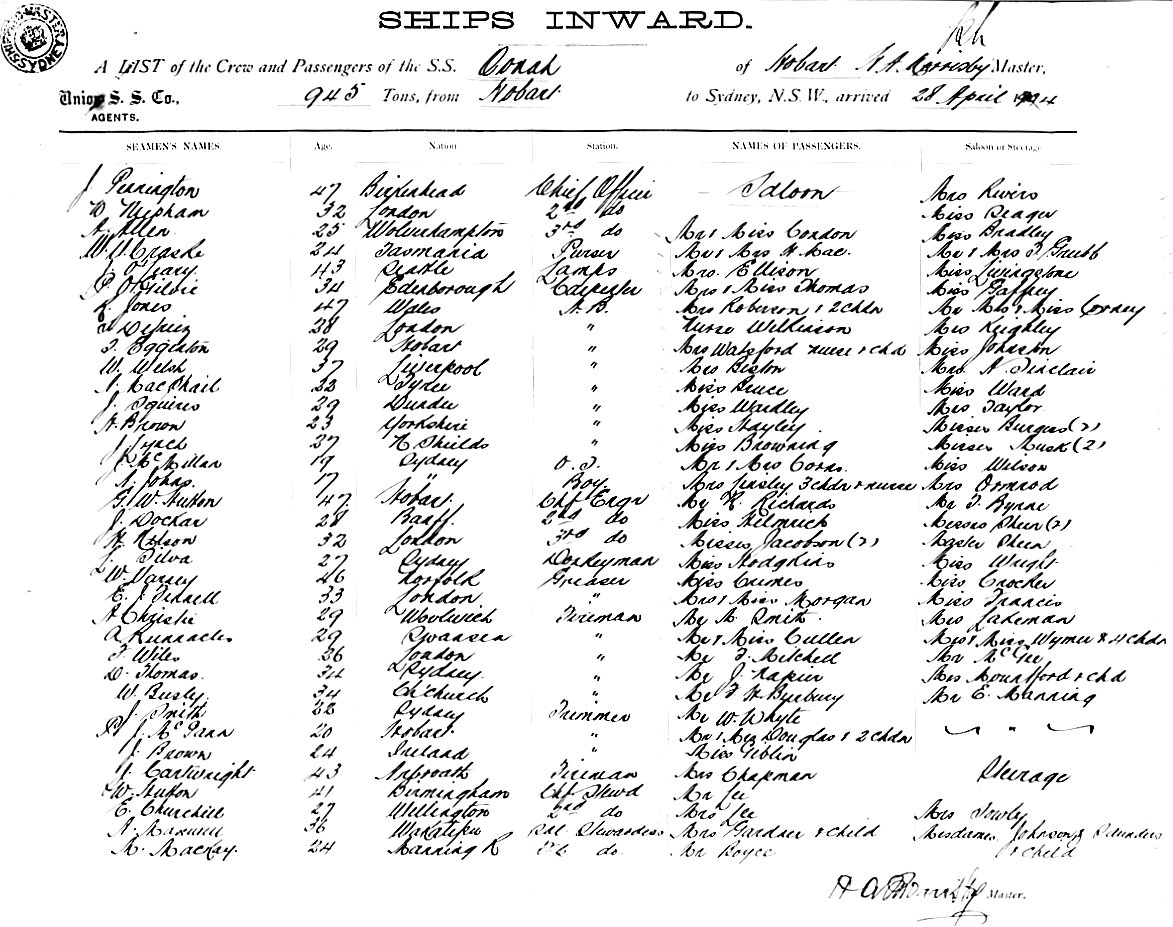 SHIPS INWARD.
A LIST of the Crew and Passengers of the S.S. Oonah of Hobart Master,
Union S. S. Co., 945 Tons, from Hobart to Sydney, N.S.W., arrived 28 April
AGENTS.
SEAMEN'S NAMES. Age. Nation. Station. NAMES OF PASSENGERS. Saloon or Steerage
J Pennington 47 Birkenhead Chief Officer Saloon Mrs Rivers
W 32 London 2nd do Miss Reager
A. Allen 25 Wolverhampton 3rd do Mr & Miss Condon Miss Bradley
W. 24 Tasmania Purser Mr & Mrs H Mac. Mr & Mrs F Grubb
O'Gary 43 Lamps Mrs. Ellison Miss Livingstone
P. O'Gilvie 34 Edenborough Carpenter Mrs & Miss Thomas Miss Gaffney
Jones 47 Wales A.B. Mrs Roberson & 2 chdn Mr Mrs & Miss
28 London " Nurse Wilkinson Mrs Keighley
F. Eggleston 29 Hobart " Mrs Watsford nurse & chd Miss Johnston
W. Welsh 37 Liverpool " Mrs Biston Mrs. A Sinclair
MacPhail 22 Sydee " Miss Bruce Miss Ward
J. Squires 29 Dundee " Miss Wardley Mrs Taylor
A. Brown 23 Yorkshire " Miss Hayley Misses Burgess (2)
J Lynch 27 N. Shields " Miss Browning Misses Rusk (2)
J McMillan 19 Sydney O.S. Mr & Mrs Miss Wilson
A. Johns. 17 " Boy. Mrs Linsley 3 chdn & nurse Mrs Ormrod
G. W. Hutton 47 Hobart Chf Engr Mr R. Richards Mr F. Byrne
J. Dockar 28 Banff. 2nd do Miss Helmrich Misses Sheen (2)
H Nelson 32 London 3rd do Misses Jacobson (2) Master Sheen
Silva 27 Sydney Donkeyman Miss Hodgkins Miss Wright
W. Varney 46 Norfolk Greaser Miss Crimes Miss Crocker
E. J. Fennell 33 London " Mrs & Miss Morgan Miss Francis
A Christie 29 Woolwich Fireman Mr A. Smith Mrs Lakeman
A. Runnacles 29 Swansea " Mr & Miss Cullen Mrs & Miss Wymer & 4 chdn
F Wiles 26 London " Mr F. Mitchell Mr McGee
D. Thomas. 34 Sydney " Mr J. Napier Mrs Mountford & chd
W. Busby. 34 Ch'church " Mr F. H Burbury Mr E. Manning
J. Smith 22 Sydney Trimmer Mr W. Whyte
J. McGann 20 Hobart " Mr & Mrs Douglas & 2 chdn "
J. Brown 24 Ireland " Miss Giblin
J. Cartwright 43 Arbroath Fireman Mrs Chapman Steerage
W. Hutton 41 Birmingham Chf Stewd Mr Lee
E. Churchill 27 Wellington 2nd do Mrs Lee Mrs Fowler
A. Maxwell 36 Wakatipu Sal Stewardess Mrs Gardner & Child Mesdames Johnson & Saunders
M. Mackay. 24 Manning R do. Mr Boyce & Child
Master.